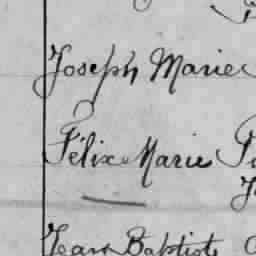 Joseph Marie
Félix Marie
Jean Baptiste